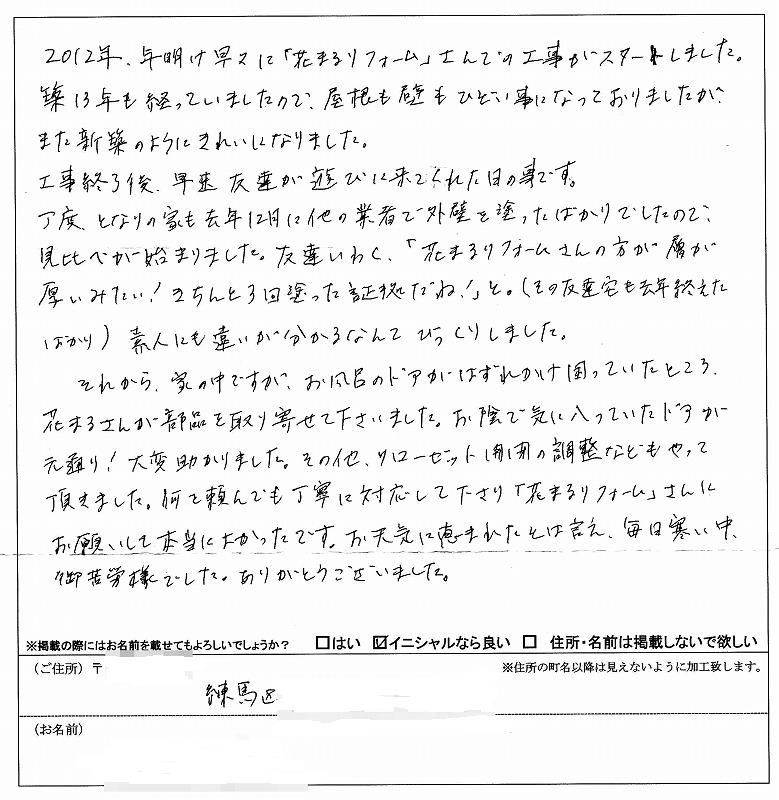 2012年、年明け早々に「花まるリフォーム」さんでの工事がスタートしました。
築13年も経っていましたので、屋根も壁もひどい事になっておりましたが、
また新築のようにきれいになりました。
工事終了後、早速友達が遊びに来てくれた日の事です。
丁度、となりの家も去年12月に他の業者で外壁を塗ったばかりでしたので、
見比べが始まりました。友達いわく、「花まるリフォームさんの方が層が
厚いみたい!きちんと3回塗った証拠だね!」と。(その友達宅も去年終えた
ばかり)素人にも違いが分かるなんてびっくりしました。
それから、家の中ですが、お風呂のドアがはずれかけ困っていたところ、
花まるさんが部品を取り寄せて下さいました。お陰で気に入っていたドアが
元通り!大変助かりました。その他、クローゼット開閉の調整などもやって
頂きました。何を頼んでも丁寧に対応して下さり「花まるリフォーム」さんに
お願いして本当によかったです。お天気に恵まれたとは言え、毎日寒い中、
御苦労様でした。ありがとうございました。
※掲載の際にはお名前を載せてもよろしいでしょうか? □はい ☑イニシャルなら良い □ 住所・名前は掲載しないで欲しい
(ご住所)〒 ※住所の町名以降は見えないように加工致します。
練馬区
(お名前)